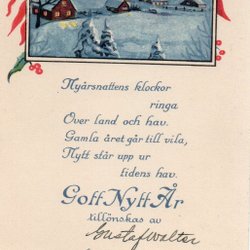 Nyårsnattens klockor
ringa
Över land och hav.
Gamla året går till vila,
Nytt står upp ur
tidens hav.
Gott Nytt År
tillönskas av
Gustaf Walter